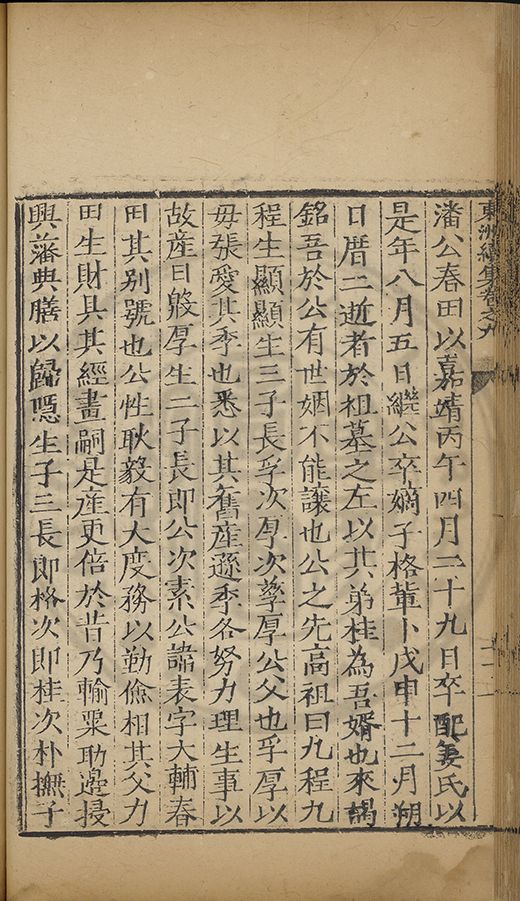 東洲續集卷之九
潘公春田以嘉靖丙午四月二十九日卒配姜氏以
是年八月五日繼公卒嫡子格輩卜戊申十二月朔
日厝二逝者於祖墓之左以其弟桂為吾婿也來謁
銘吾於公有世姻不能讓也公之先高祖曰九程九
程生顯顯生三子長孚次厚次孳厚公父也孚厚以
毋張愛其季也悉以其舊產遜季各努力理生事以
故產日殷厚生二子長即公次素公諱表字大輔春
田其別號也公性耿毅有大度務以勤儉相其父力
田生財具其經畫嗣是產更倍於昔乃輸粟助邊授
興藩典膳以歸隱生子三長即格次即桂次朴撫子